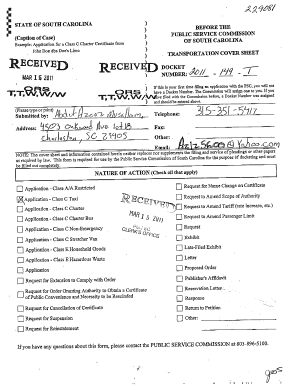 229081
STATE OF SOUTH CAROLINA
(Caption of Case)
Example: Application for a Class C Charter Certificate from
John Doe dba Doe's Limo
BEFORE THE
PUBLIC SERVICE COMMISSION
OF SOUTH CAROLINA
TRANSPORTATION COVER SHEET
RECEIVED
MAR 15 2011
ORS
T,T,W/WW
RECEIVED
ORS
T,T,W/WW
DOCKET
NUMBER: 2011 - 149 - T
(Please type or print)
Submitted by: Abdul
Address: 4503 Lot 18
Charleston, SC 29405
Telephone: 315-351-5417
Fax:
Other:
Email: @Yahoo.com
NOTE: The cover sheet and information contained herein neither replaces nor supplements the filing and service of pleadings or other papers
as required by law. This form is required for use by the Public Service Commission of South Carolina for the purpose of docketing and must
be filled out completely.
NATURE OF ACTION (Check all that apply)
Application - Class A/A Restricted
X Application - Class C Taxi
Application - Class C Charter
Application - Class C Charter Bus
Application - Class C Non-Emergency
Application - Class C Stretcher Van
Application - Class E Household Goods
Application - Class E Hazardous Waste
Application
Request for Extension to Comply with Order
Request for Order Granting Authority to Obtain a Certificate
of Public Convenience and Necessity to be Rescinded
Request for Cancellation of Certificate
Request for Suspension
Request for Reinstatement
RECEIVED
MAR 15 2011
CLERK'S OFFICE
Request for Name Change on Certificate
Request to Amend Scope of Authority
Request to Amend Tariff (rate increase, etc.)
Request to Amend Passenger Limit
Request
Exhibit
Late-Filed Exhibit
Letter
Proposed Order
Publisher's Affidavit
Reservation Letter
Response
Return to Petition
Other:
If you have any questions about this form, please contact the PUBLIC SERVICE COMMISSION at 803-896-5100.